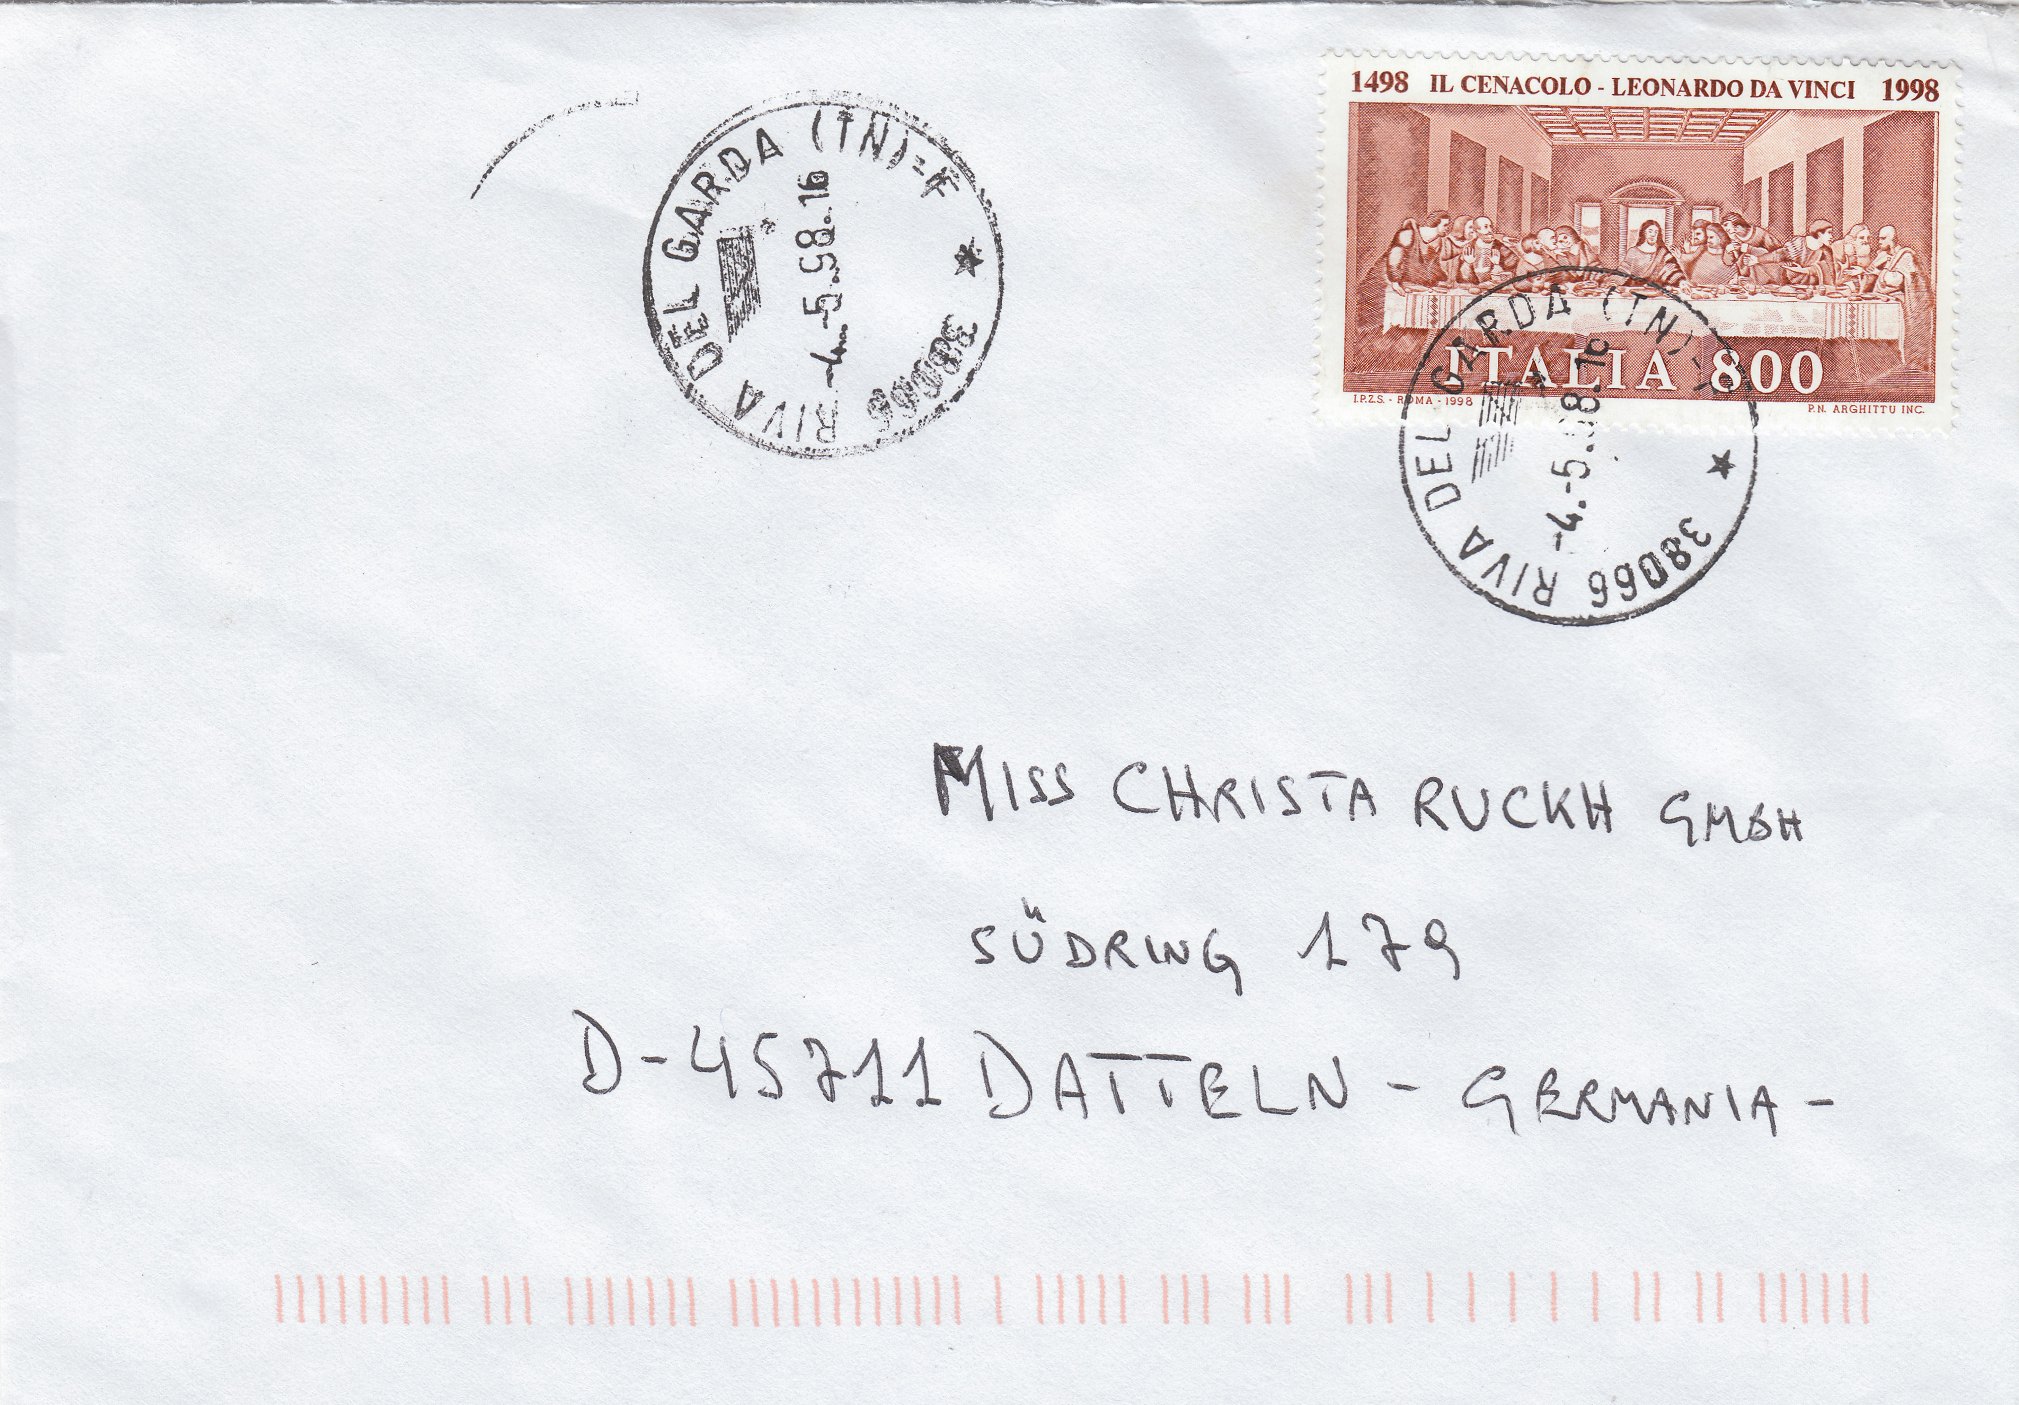 1498 IL CENACOLO - LEONARDO DA VINCI 1998
ITALIA 800
I.P.Z.S. - ROMA - 1998 P.N. ARGHITTU INC.
38066 RIVA DEL GARDA (TN)
-4.-5.98.16
38066 RIVA DEL GARDA (TN)
-4.-5.98.16
MISS CHRISTA RUCKH GMBH
SÜDRING 179
D-45711 DATTELN - GERMANIA -